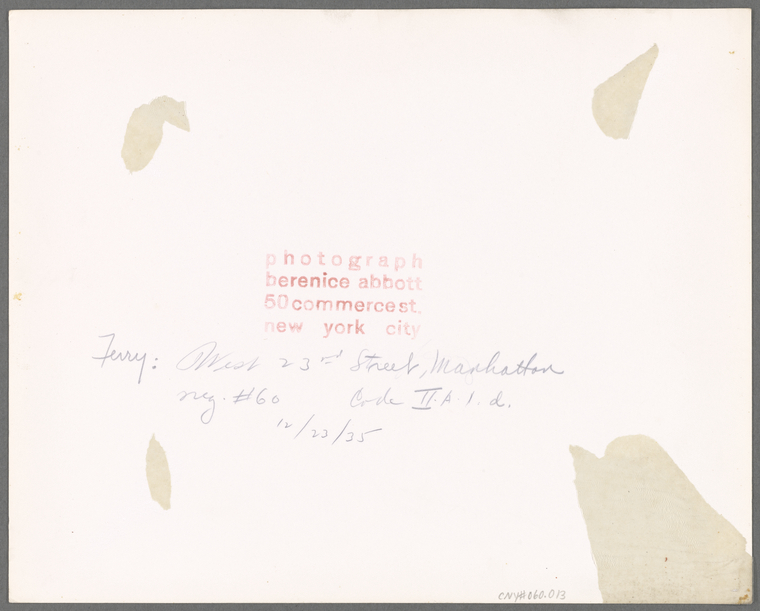 photograph
berenice abbott
50 commerce st.
new york city
Ferry: West 23rd Street, Manhattan
neg. #60 Code II.A.1.d.
12/23/35
CNY#060.013